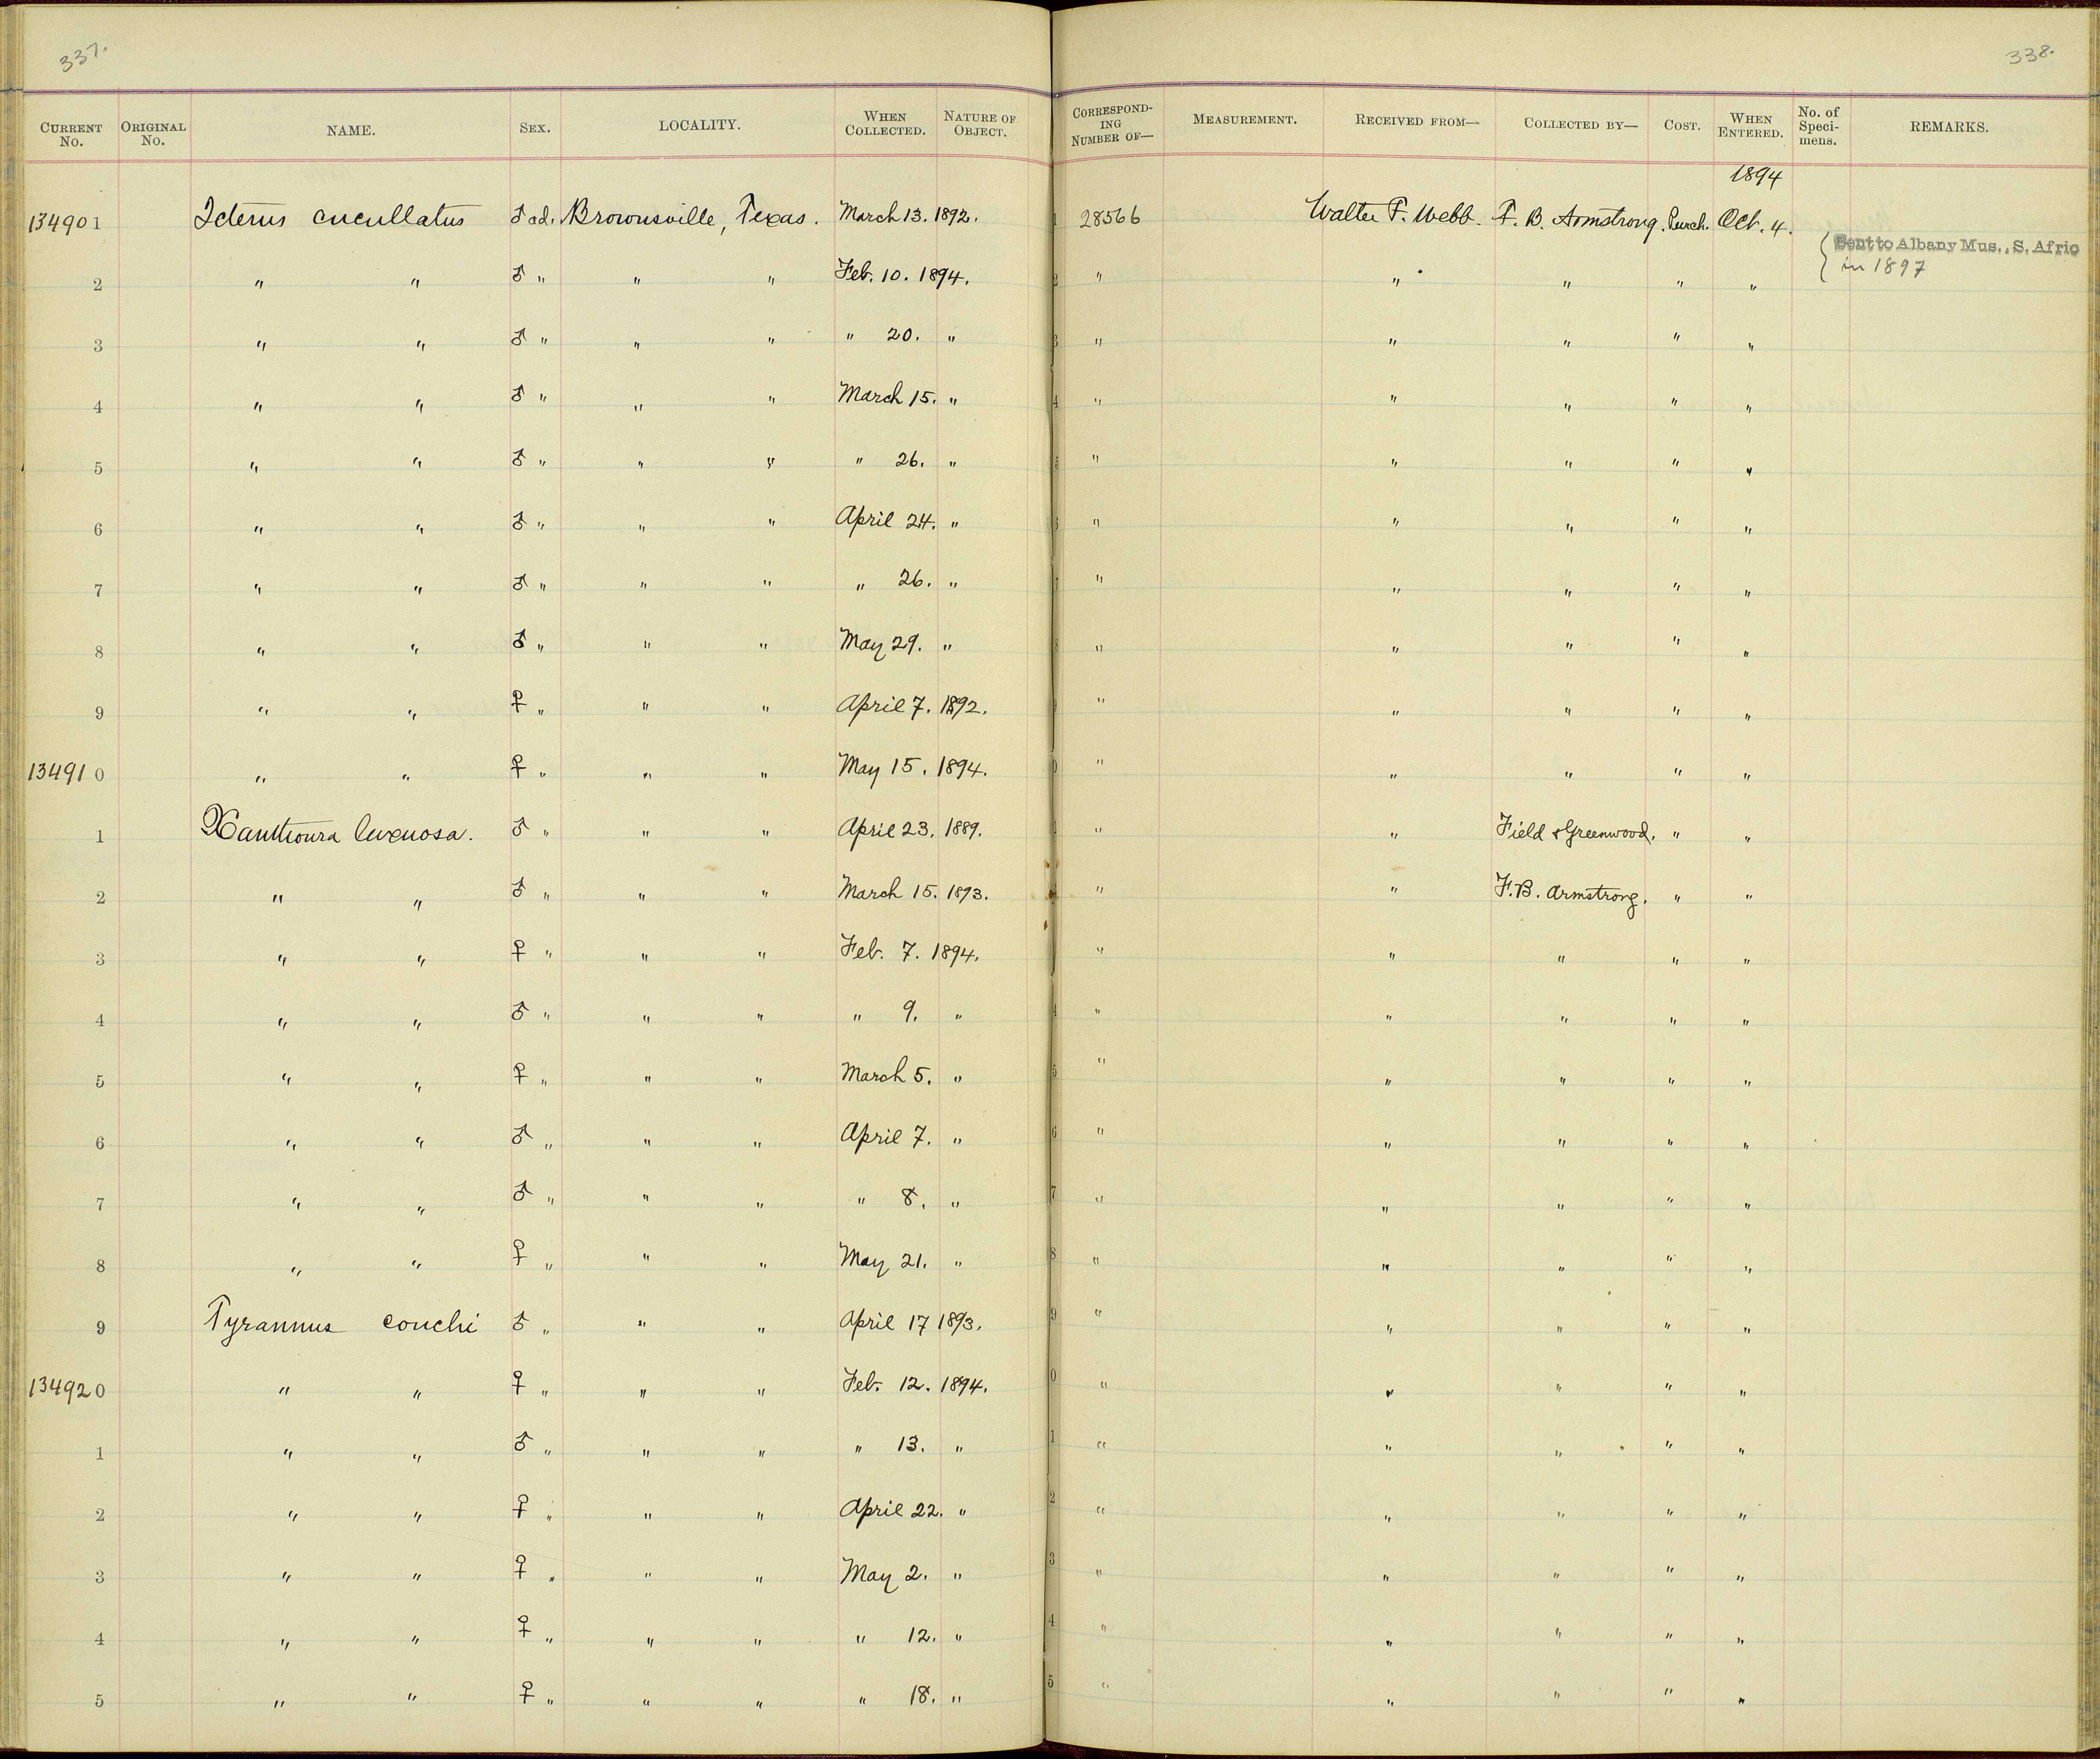 337.
338.
CURRENT No. ORIGINAL No. NAME. SEX. LOCALITY. WHEN COLLECTED. NATURE OF OBJECT. CORRESPONDING NUMBER OF— MEASUREMENT. RECEIVED FROM— COLLECTED BY— COST. WHEN ENTERED. No. of Specimens. REMARKS.
1894
134901 Icterus cucullatus ♂ ad. Brownsville, Texas. March 13. 1892. 1 28566 Walter F. Webb. F. B. Armstrong. Purch. Oct. 4. { Sent to Albany Mus., S. Afric
in 1897
2 " " ♂ " " " Feb. 10. 1894. 2 " " " " "
3 " " ♂ " " " " 20. " 3 " " " " "
4 " " ♂ " " " March 15. " 4 " " " " "
5 " " ♂ " " " " 26. " 5 " " " " "
6 " " ♂ " " " April 24. " 6 " " " " "
7 " " ♂ " " " " 26. " 7 " " " " "
8 " " ♂ " " " May 29. " 8 " " " " "
9 " " ♀ " " " April 7. 1892. 9 " " " " "
134910 " " ♀ " " " May 15. 1894. 0 " " " " "
1 Xanthoura luxuosa. ♂ " " " April 23. 1889. 1 " " Field & Greenwood. " "
2 " " ♂ " " " March 15. 1893. " " F. B. Armstrong. " "
3 " " ♀ " " " Feb. 7. 1894. " " " " "
4 " " ♂ " " " " 9. " 4 " " " " "
5 " " ♀ " " " March 5. " 5 " " " " "
6 " " ♂ " " " April 7. " 6 " " " " "
7 " " ♂ " " " " 8. " 7 " " " " "
8 " " ♀ " " " May 21. " 8 " " " " "
9 Tyrannus couchi ♂ " " " April 17 1893. 9 " " " " "
134920 " " ♀ " " " Feb. 12. 1894. 0 " " " " "
1 " " ♂ " " " " 13. " 1 " " " " "
2 " " ♀ " " " April 22. " 2 " " " " "
3 " " ♀ " " " May 2. " 3 " " " " "
4 " " ♀ " " " " 12. " 4 " " " " "
5 " " ♀ " " " " 18. " 5 " " " " "